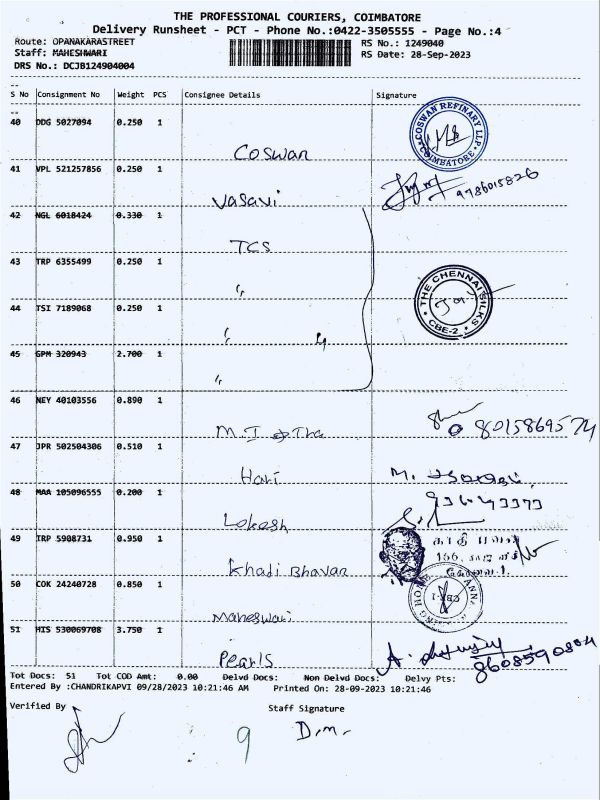 THE PROFESSIONAL COURIERS, COIMBATORE
Delivery Runsheet - PCT - Phone No.:0422-3505555 - Page No.:4
Route: OPANAKARASTREET RS No.: 1249040
Staff: MAHESHWARI RS Date: 28-Sep-2023
DRS No.: DCJB124904004
S No Consignment No Weight PCS Consignee Details Signature
40 DDG 5027094 0.250 1
COSWAN REFINARY LLP COIMBATORE
Coswan
41 VPL 521257856 0.250 1
9786015826
Vasavi
42 NGL 6018424 0.330 1
TCS
43 TRP 6355499 0.250 1
"
THE CHENNAI SILKS CBE-2
44 TSI 7189068 0.250 1
" 4
45 GPM 320943 2.700 1
"
46 NEY 40103556 0.890 1
8015869574
M.I
47 JPR 502504306 0.510 1
Hari M.
48 MAA 105096555 0.200 1
Lokesh
49 TRP 5908731 0.950 1
Khadi Bhavan
50 COK 24240728 0.850 1
Maheswari
51 HIS 530069708 3.750 1
Pearls A. 8608590884
Tot Docs: 51 Tot COD Amt: 0.00 Delvd Docs: Non Delvd Docs: Delvy Pts:
Entered By :CHANDRIKAPVI 09/28/2023 10:21:46 AM Printed On: 28-09-2023 10:21:46
Verified By Staff Signature
9 D.M.